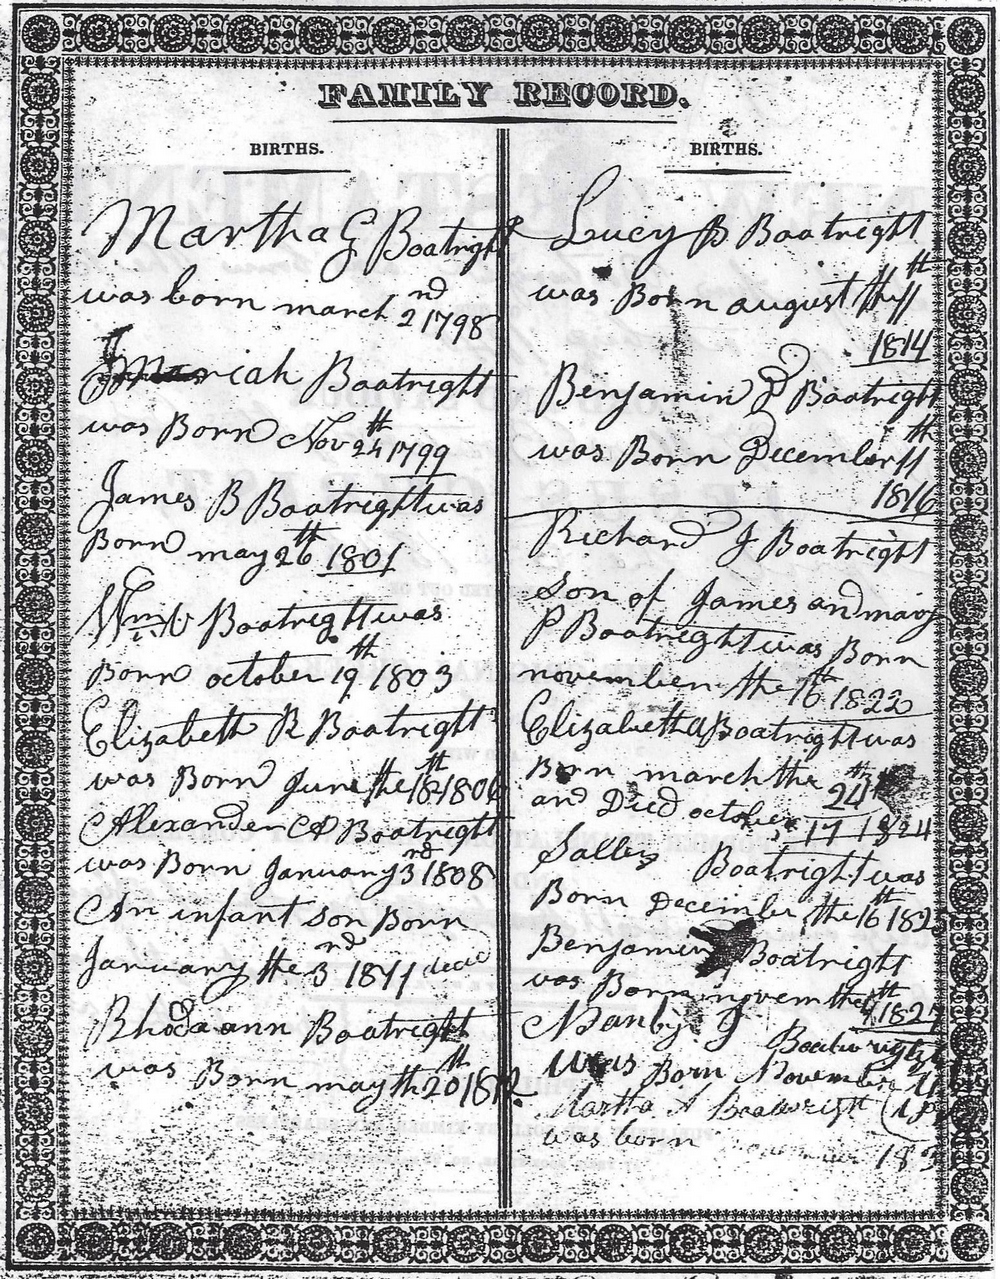 FAMILY RECORD.
BIRTHS.
Martha G Boatright
was born march 2nd 1798
riah Boatright
was Born Nov 24th 1799
James B Boatright was
Born may 26th 1801
Wm Boatright was
Born october 19th 1803
Elizabeth R Boatright
was Born June the 18th 1806
Alexander Boatright
was Born January 3rd 1808
An infant son Born
January the 3rd 1811 dead
Rhoda ann Boatright
was Born may th 20th 1812
BIRTHS.
Lucy B Boatright
was Born august th 11th
1814
Benjamin Boatright
was Born December 11th
1816
Richard J Boatright
Son of James and mary
P Boatright was Born
november the 16th 1822
Elizabeth A Boatright was
Born march the 24th
and Died october 17 1824
Salley Boatright was
Born December the 16th 182
Benjamin Boatright
was Born novem the th 182
Manby J Boatwright
was Born November
Martha A Boatwright
was born 183